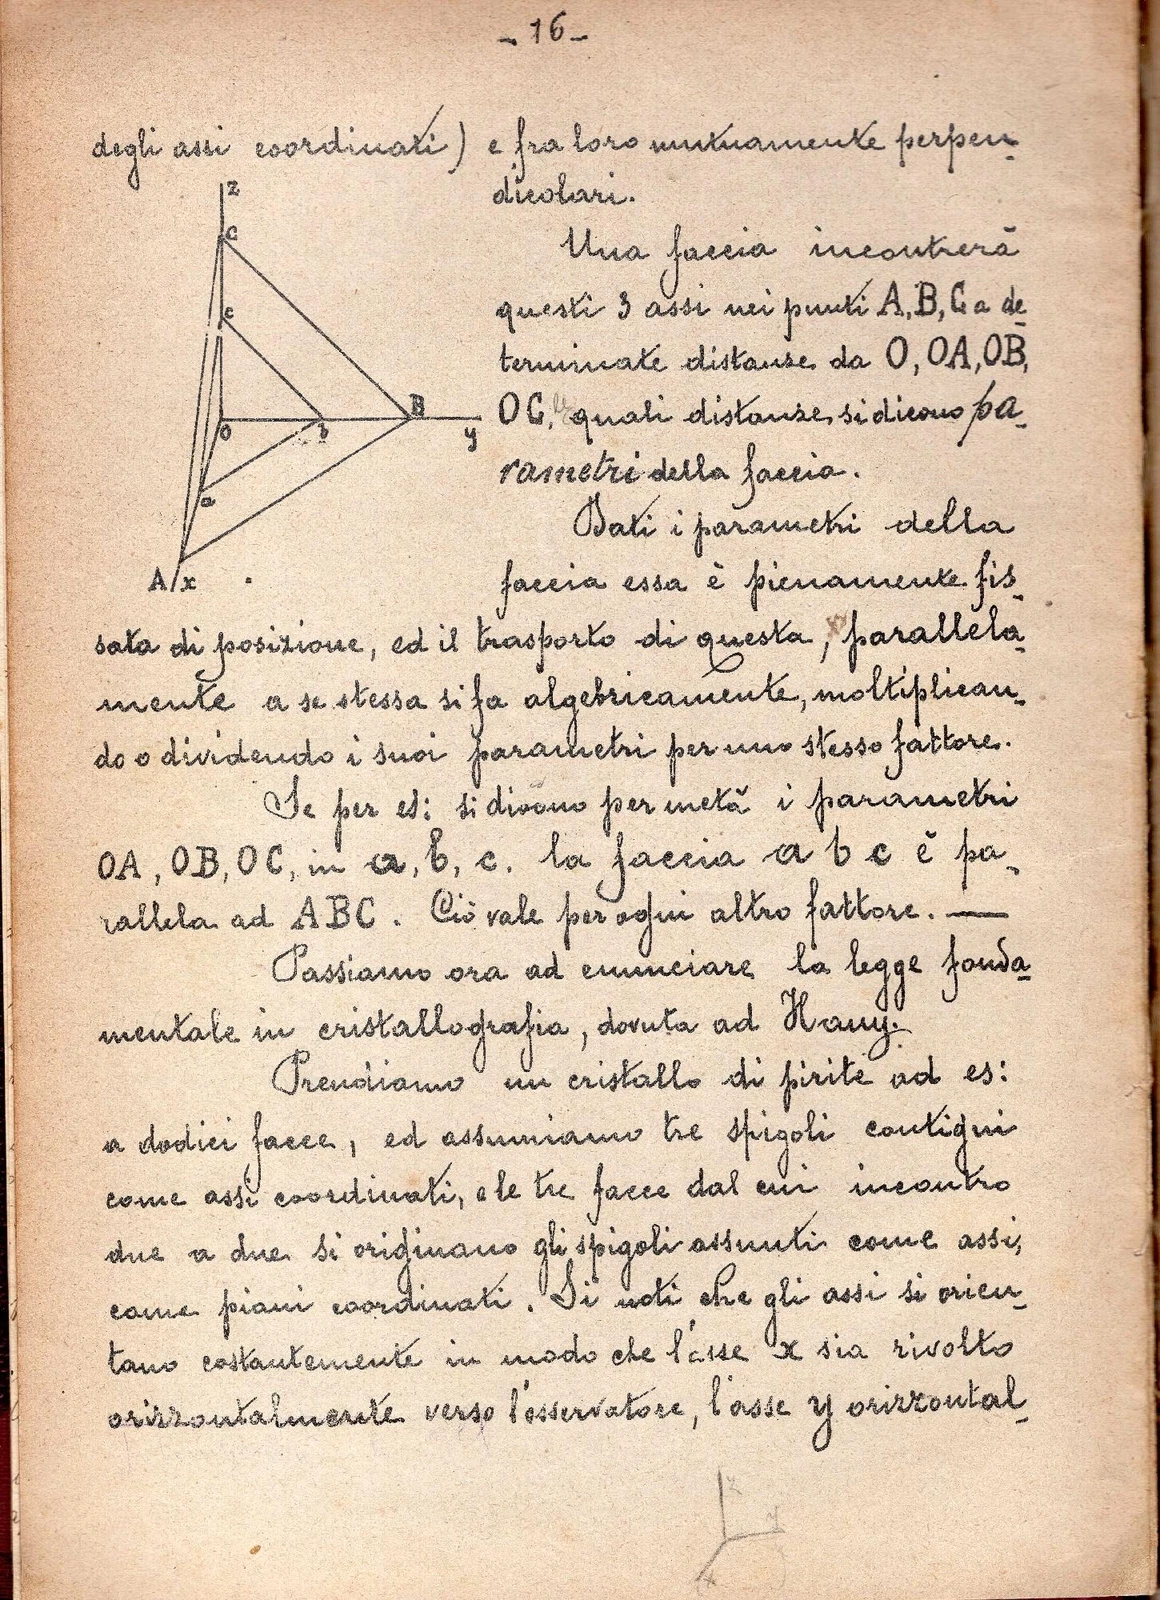 - 16 -
degli assi coordinati) e fra loro mutuamente perpen-
dicolari.
z
C
c
O
b
B
y
a
A
x
Una faccia incontrerà
questi 3 assi nei punti A, B, C a de-
terminate distanze da O, OA, OB,
OC, le quali distanze si dicono pa-
rametri della faccia.
Dati i parametri della
faccia essa è pienamente fis-
sata di posizione, ed il trasporto di questa, parallela-
mente a se stessa si fa algebricamente, moltiplican-
do o dividendo i suoi parametri per uno stesso fattore.
Se per es: si dicono per metà i parametri
OA, OB, OC, in a, b, c. la faccia a b c è pa-
rallela ad ABC. Ciò vale per ogni altro fattore. —
Passiamo ora ad enunciare la legge fonda-
mentale in cristallografia, dovuta ad Hauy.
Prendiamo un cristallo di pirite ad es:
a dodici facce, ed assumiamo tre spigoli contigui
come assi coordinati, e le tre facce dal cui incontro
due a due si originano gli spigoli assunti come assi,
come piani coordinati. Si noti che gli assi si orien-
tano costantemente in modo che l'asse x sia rivolto
orizzontalmente verso l'osservatore, l'asse y orizzontal-
z
y
x